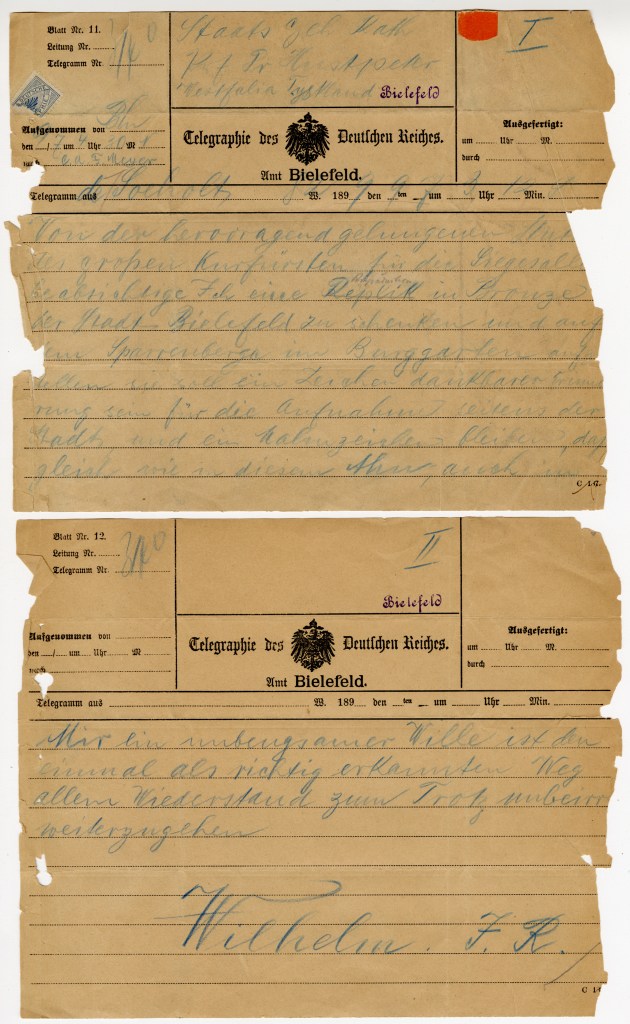 Blatt Nr. 11.
Leitung Nr.
Telegramm Nr.
Staats
Westfalia
Bielefeld
I
Aufgenommen von
den / um Uhr M
durch
Telegraphie des Deutschen Reiches.
Amt Bielefeld.
Ausgefertigt:
um Uhr M.
durch
Telegramm aus W. 189 den ten um Uhr Min.
Von der hervorragend gelungenen
des großen Kurfürsten für die Siegesallee
beabsichtige Ich eine Replik in Bronze
der Stadt Bielefeld zu schenken und auf
dem Sparrenberge im Burggarten
stellen ein Zeichen dankbarer
rung sein für die Aufnahme seitens der
Stadt und ein Mahnzeichen bleiben, daß
gleich wie in diesem Ahn, auch in
C 1
Blatt Nr. 12.
Leitung Nr.
Telegramm Nr.
II
Bielefeld
Aufgenommen von
den / um Uhr M
durch
Telegraphie des Deutschen Reiches.
Amt Bielefeld.
Ausgefertigt:
um Uhr M.
durch
Telegramm aus W. 189 den ten um Uhr Min.
Mir ein unbeugsamer Wille ist den
einmal als richtig erkannten Weg
allem Wiederstand zum Trotz unbeirr
weiterzugehen
Wilhelm. I. R.
C 1